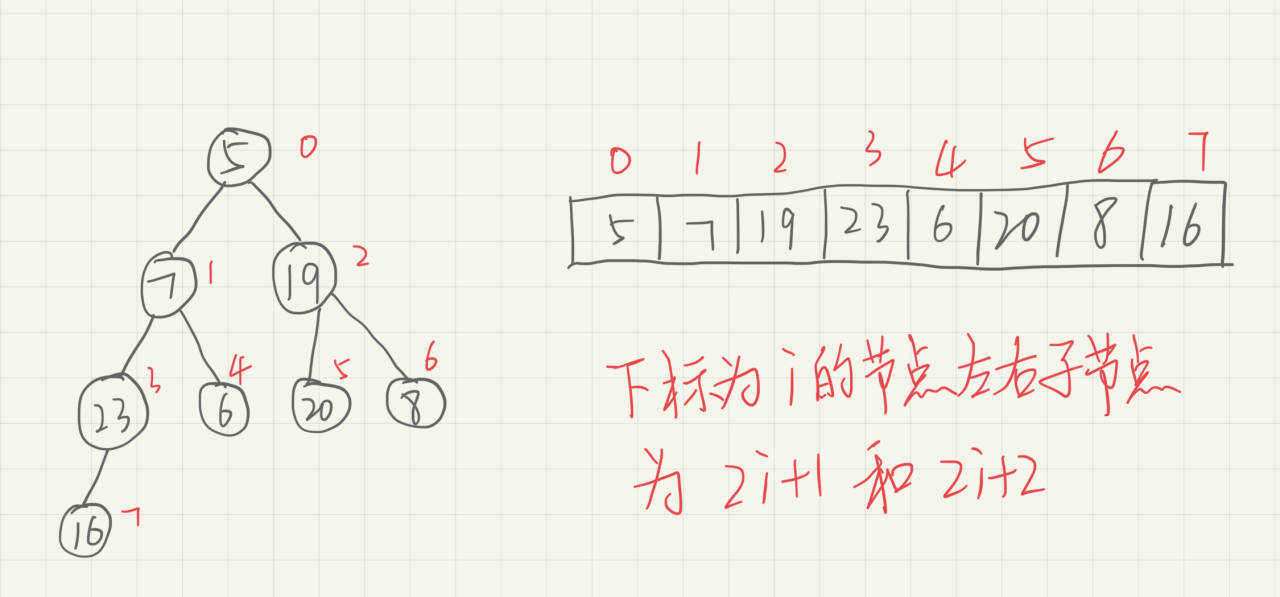 5 0
7 1 19 2
23 3 6 4 20 5 8 6
16 7
0 1 2 3 4 5 6 7
5 7 19 23 6 20 8 16
下标为i的节点左右子节点
为 2i+1 和 2i+2